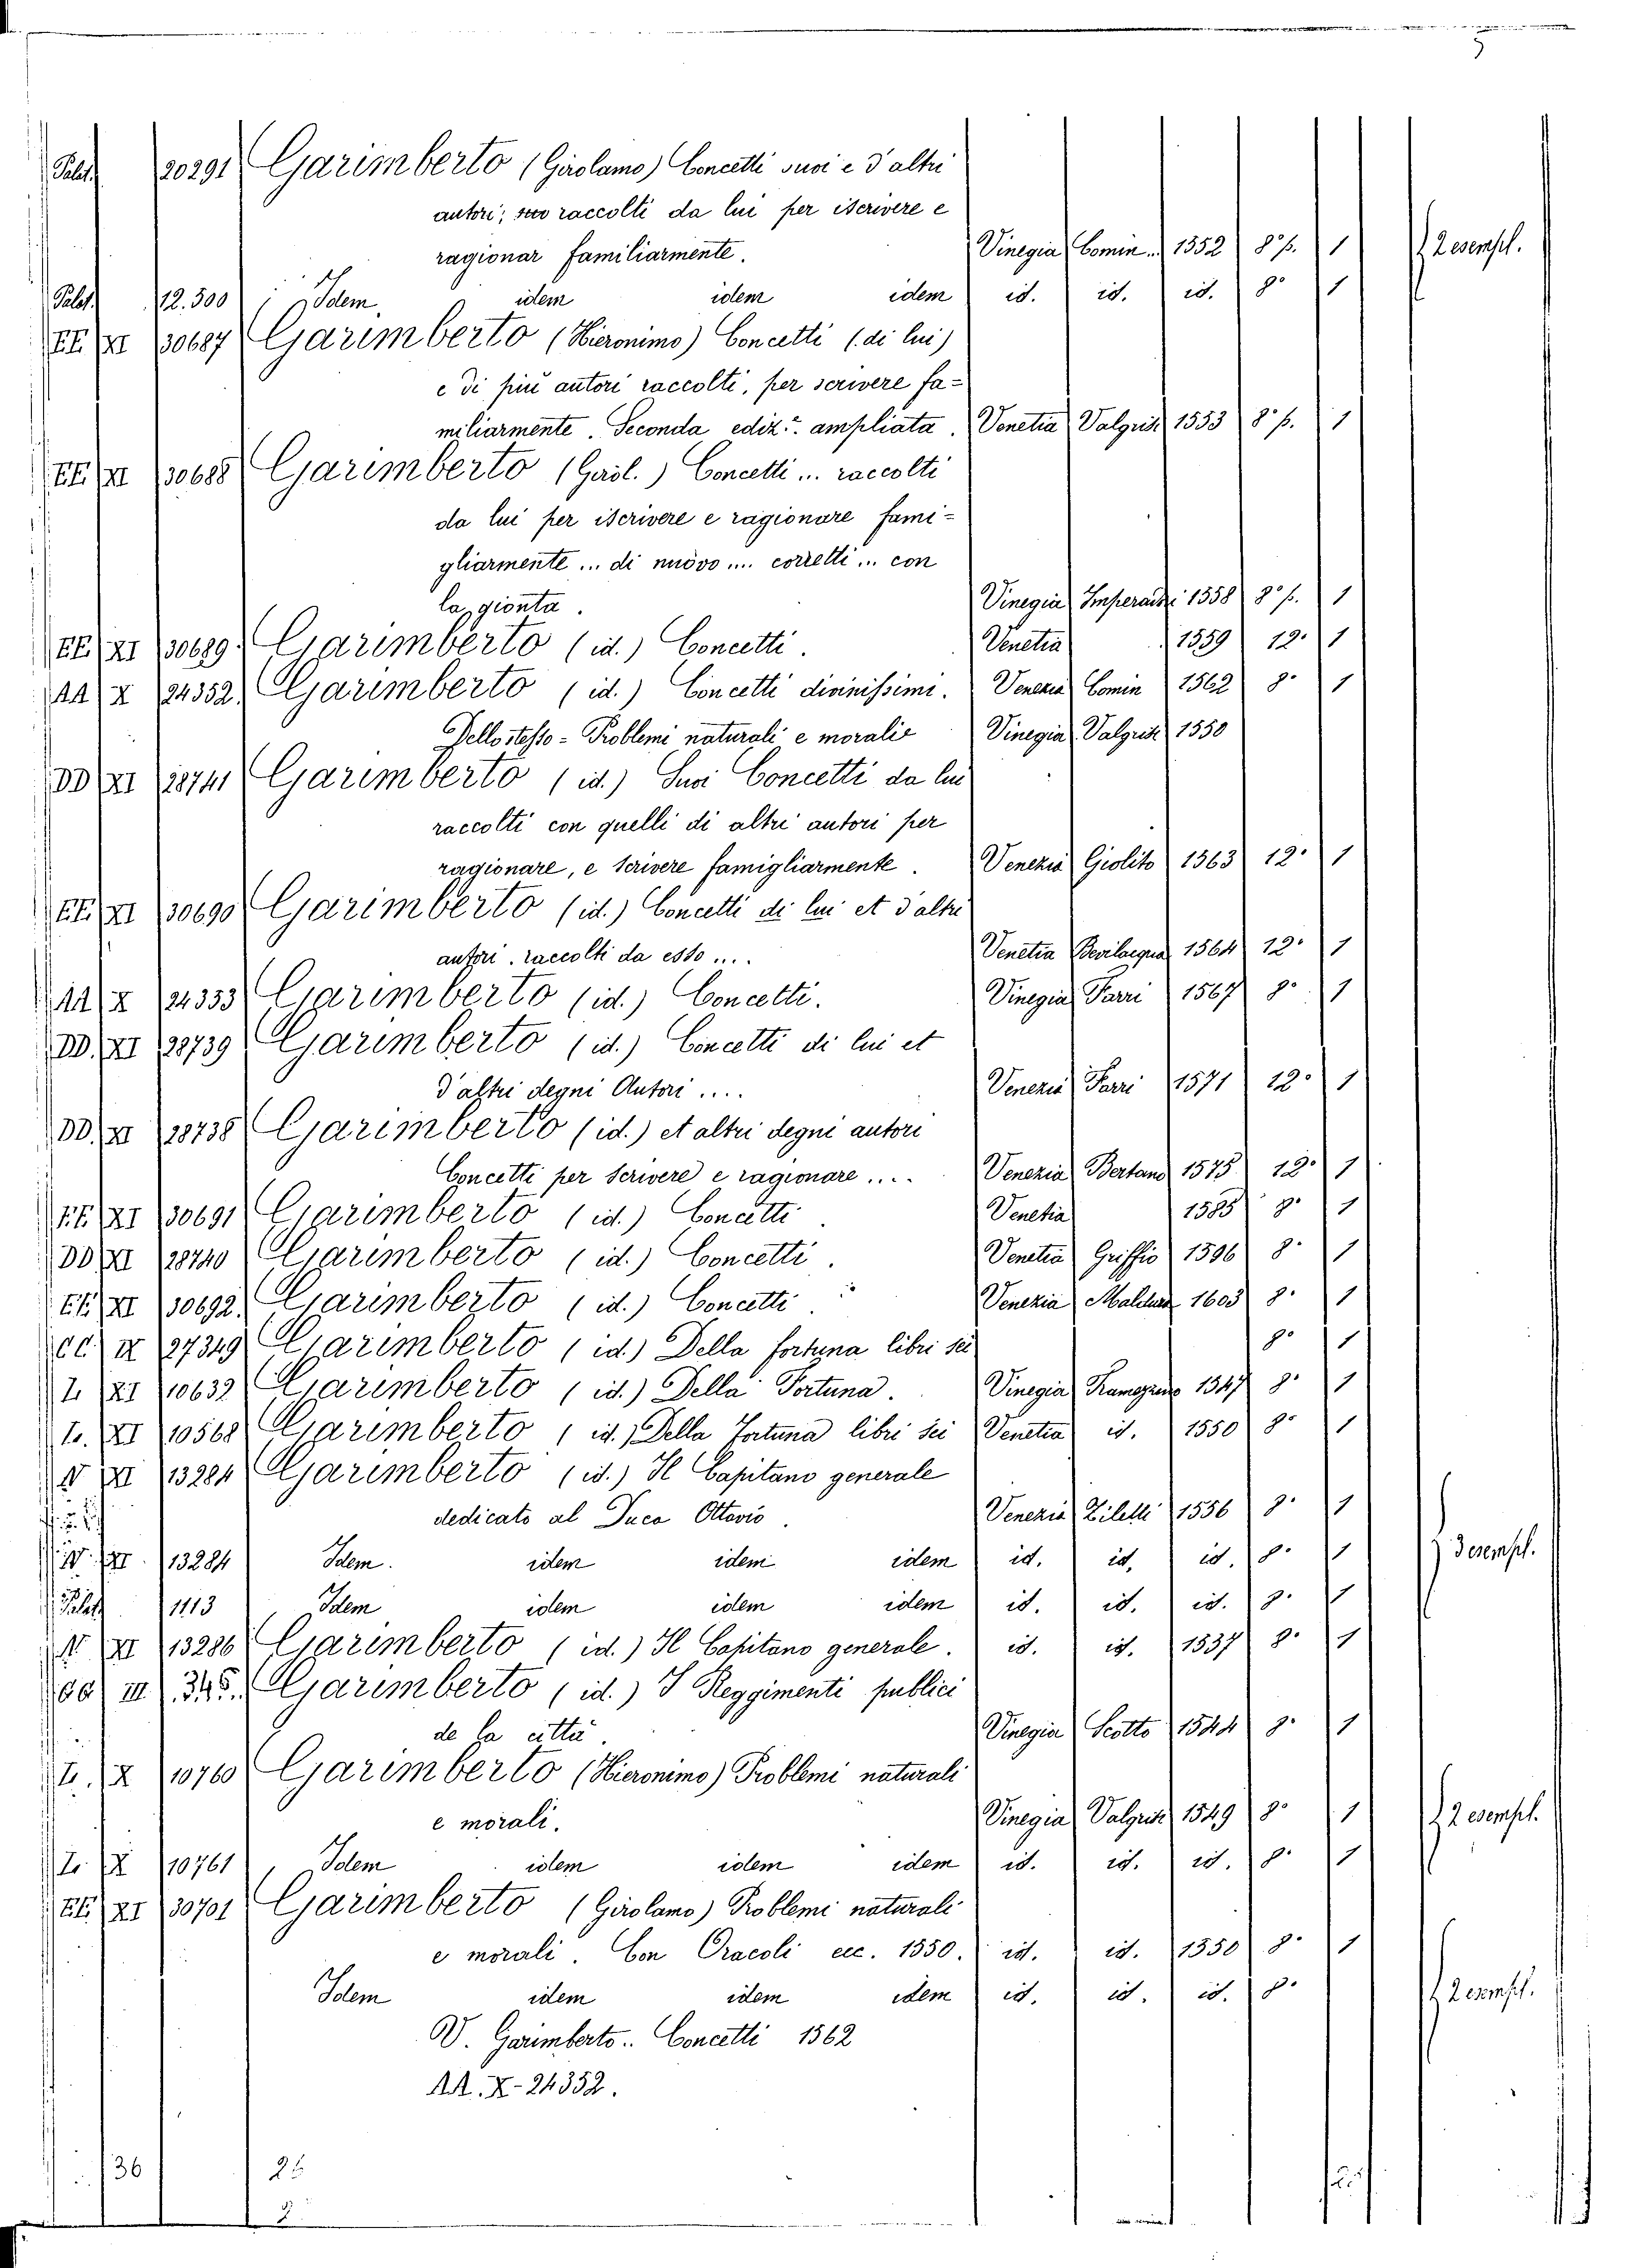 5
Palat. 20291 Garimberto (Girolamo) Concetti suoi e d'altri
autori; raccolti da lui per iscrivere e
ragionar familiarmente. Vinegia Comin. 1552 8° p. 1 2 esempl.
Palat. 12.500 Idem idem idem idem id. id. id. 8° 1
EE. XI 30687 Garimberto (Hieronimo) Concetti (di lui)
e di più autori raccolti, per scrivere fa=
miliarmente. Seconda ediz.e ampliata. Venetia Valgris. 1553 8° p. 1
EE. XI 30688 Garimberto (Girol.) Concetti... raccolti
da lui per iscrivere e ragionare fami=
gliarmente... di nuovo.... corretti... con
la gionta. Vinegia Imperador 1558 8° p. 1
EE. XI 30689. Garimberto (id.) Concetti. Venetia 1559 12. 1
AA X 24352. Garimberto (id.) Concetti divinissimi. Venezia Comin 1562 8° 1
Dello stesso = Problemi naturali e morali Vinegia Valgrisi 1550
DD XI 28741 Garimberto (id.) Suoi Concetti da lui
raccolti con quelli di altri autori per
ragionare, e scrivere famigliarmente. Venezia Giolito 1563 12. 1
EE. XI 30690 Garimberto (id.) Concetti di lui et d'altri
autori. raccolti da esso.... Venetia Bevilacqua 1564 12. 1
AA X 24353 Garimberto (id.) Concetti. Vinegia Farri 1567 8° 1
DD. XI 28739 Garimberto (id.) Concetti di lui et
d'altri degni Autori.... Venezia Farri 1571 12. 1
DD. XI 28738 Garimberto (id.) et altri degni autori
Concetti per scrivere e ragionare.... Venezia Bertano 1575 12. 1
EE. XI 30691 Garimberto (id.) Concetti Venetia 1585 8° 1
DD XI 28740 Garimberto (id.) Concetti. Venetia Griffio 1596 8. 1
EE. XI 30692. Garimberto (id.) Concetti. Venezia Maldura 1603 8. 1
CC IX 27349 Garimberto (id.) Della fortuna libri sei 8° 1
L XI 10632 Garimberto (id.) Della Fortuna. Vinegia 1547 8. 1
L. XI 10568 Garimberto (id.) Della Fortuna libri sei Venetia id. 1550 8° 1
N XI 13284 Garimberto (id.) Il Capitano generale
dedicato al Duca Ottavio. Venezia Ziletti 1556 8. 1
N. XI. 13284 Idem. idem idem idem id. id. id. 8. 1 3 esempl.
Palat 1113 Idem idem idem idem id. id. id. 8. 1
N. XI 13286 Garimberto (id.) Il Capitano generale. id. id. 1557 8. 1
GG III 345. Garimberto (id.) I Reggimenti publici
de la città. Vinegia Scotto 1544 8. 1
L. X 10760 Garimberto (Hieronimo) Problemi naturali
e morali. Vinegia Valgrisi 1549 8° 1 2 esempl.
L. X 10761 Idem idem idem idem id. id. id. 8. 1
EE. XI 30701 Garimberto (Girolamo) Problemi naturali
e morali. Con Oracoli ecc. 1550. id. id. 1550 8. 1
Idem idem idem idem id. id. id. 8. 2 esempl.
V. Garimberto.. Concetti 1562
AA. X-24352.
36 25
2